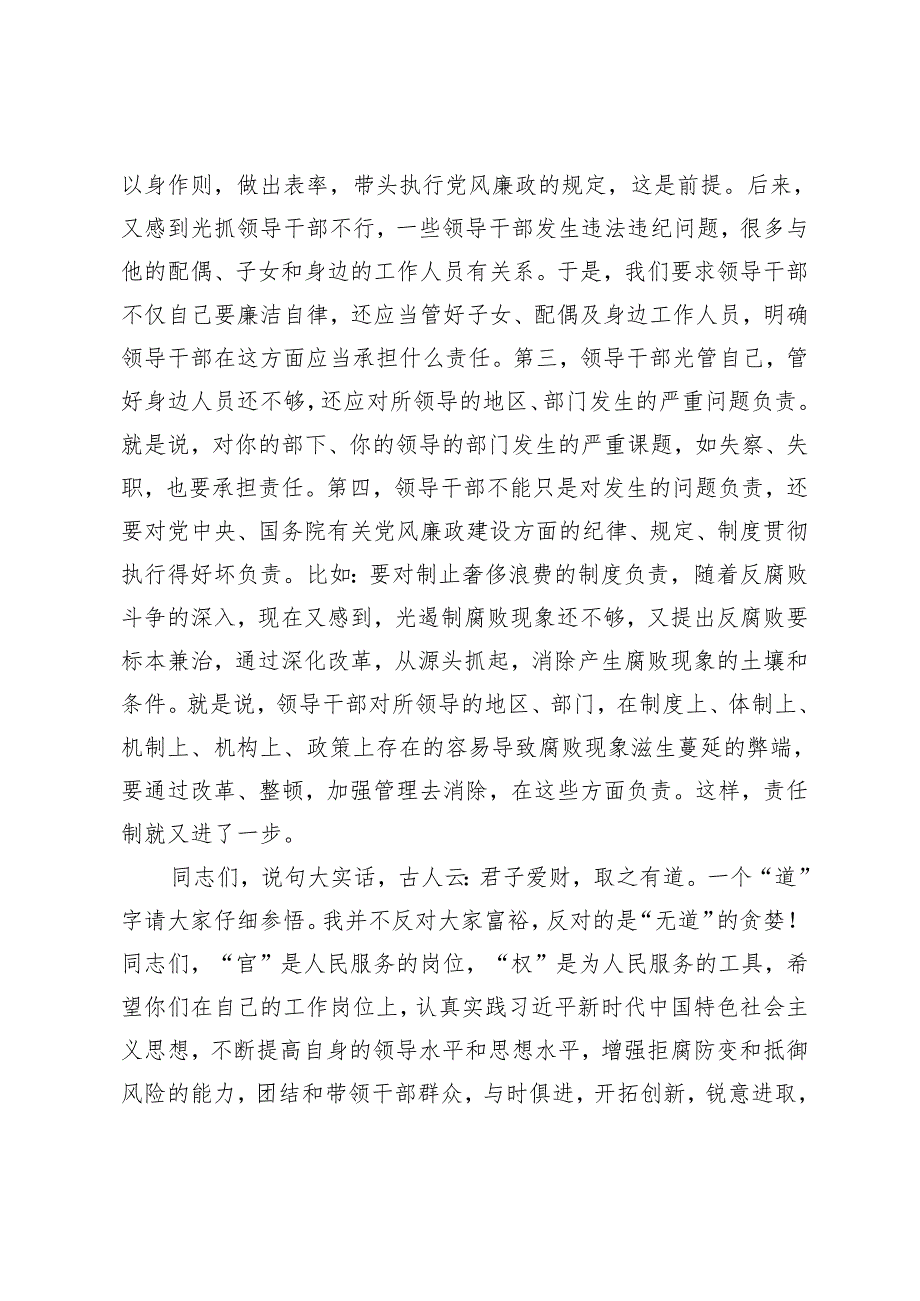 以身作则，做出表率，带头执行党风廉政的规定，这是前提。后来，
又感到光抓领导干部不行，一些领导干部发生违法违纪问题，很多与
他的配偶、子女和身边的工作人员有关系。于是，我们要求领导干部
不仅自己要廉洁自律，还应当管好子女、配偶及身边工作人员，明确
领导干部在这方面应当承担什么责任。第三，领导干部光管自己，管
好身边人员还不够，还应对所领导的地区、部门发生的严重问题负责。
就是说，对你的部下、你的领导的部门发生的严重课题，如失察、失
职，也要承担责任。第四，领导干部不能只是对发生的问题负责，还
要对党中央、国务院有关党风廉政建设方面的纪律、规定、制度贯彻
执行得好坏负责。比如：要对制止奢侈浪费的制度负责，随着反腐败
斗争的深入，现在又感到，光遏制腐败现象还不够，又提出反腐败要
标本兼治，通过深化改革，从源头抓起，消除产生腐败现象的土壤和
条件。就是说，领导干部对所领导的地区、部门，在制度上、体制上、
机制上、机构上、政策上存在的容易导致腐败现象滋生蔓延的弊端，
要通过改革、整顿，加强管理去消除，在这些方面负责。这样，责任
制就又进了一步。
同志们，说句大实话，古人云：君子爱财，取之有道。一个“道”
字请大家仔细参悟。我并不反对大家富裕，反对的是“无道”的贪婪！
同志们，“官”是人民服务的岗位，“权”是为人民服务的工具，希
望你们在自己的工作岗位上，认真实践习近平新时代中国特色社会主
义思想，不断提高自身的领导水平和思想水平，增强拒腐防变和抵御
风险的能力，团结和带领干部群众，与时俱进，开拓创新，锐意进取，